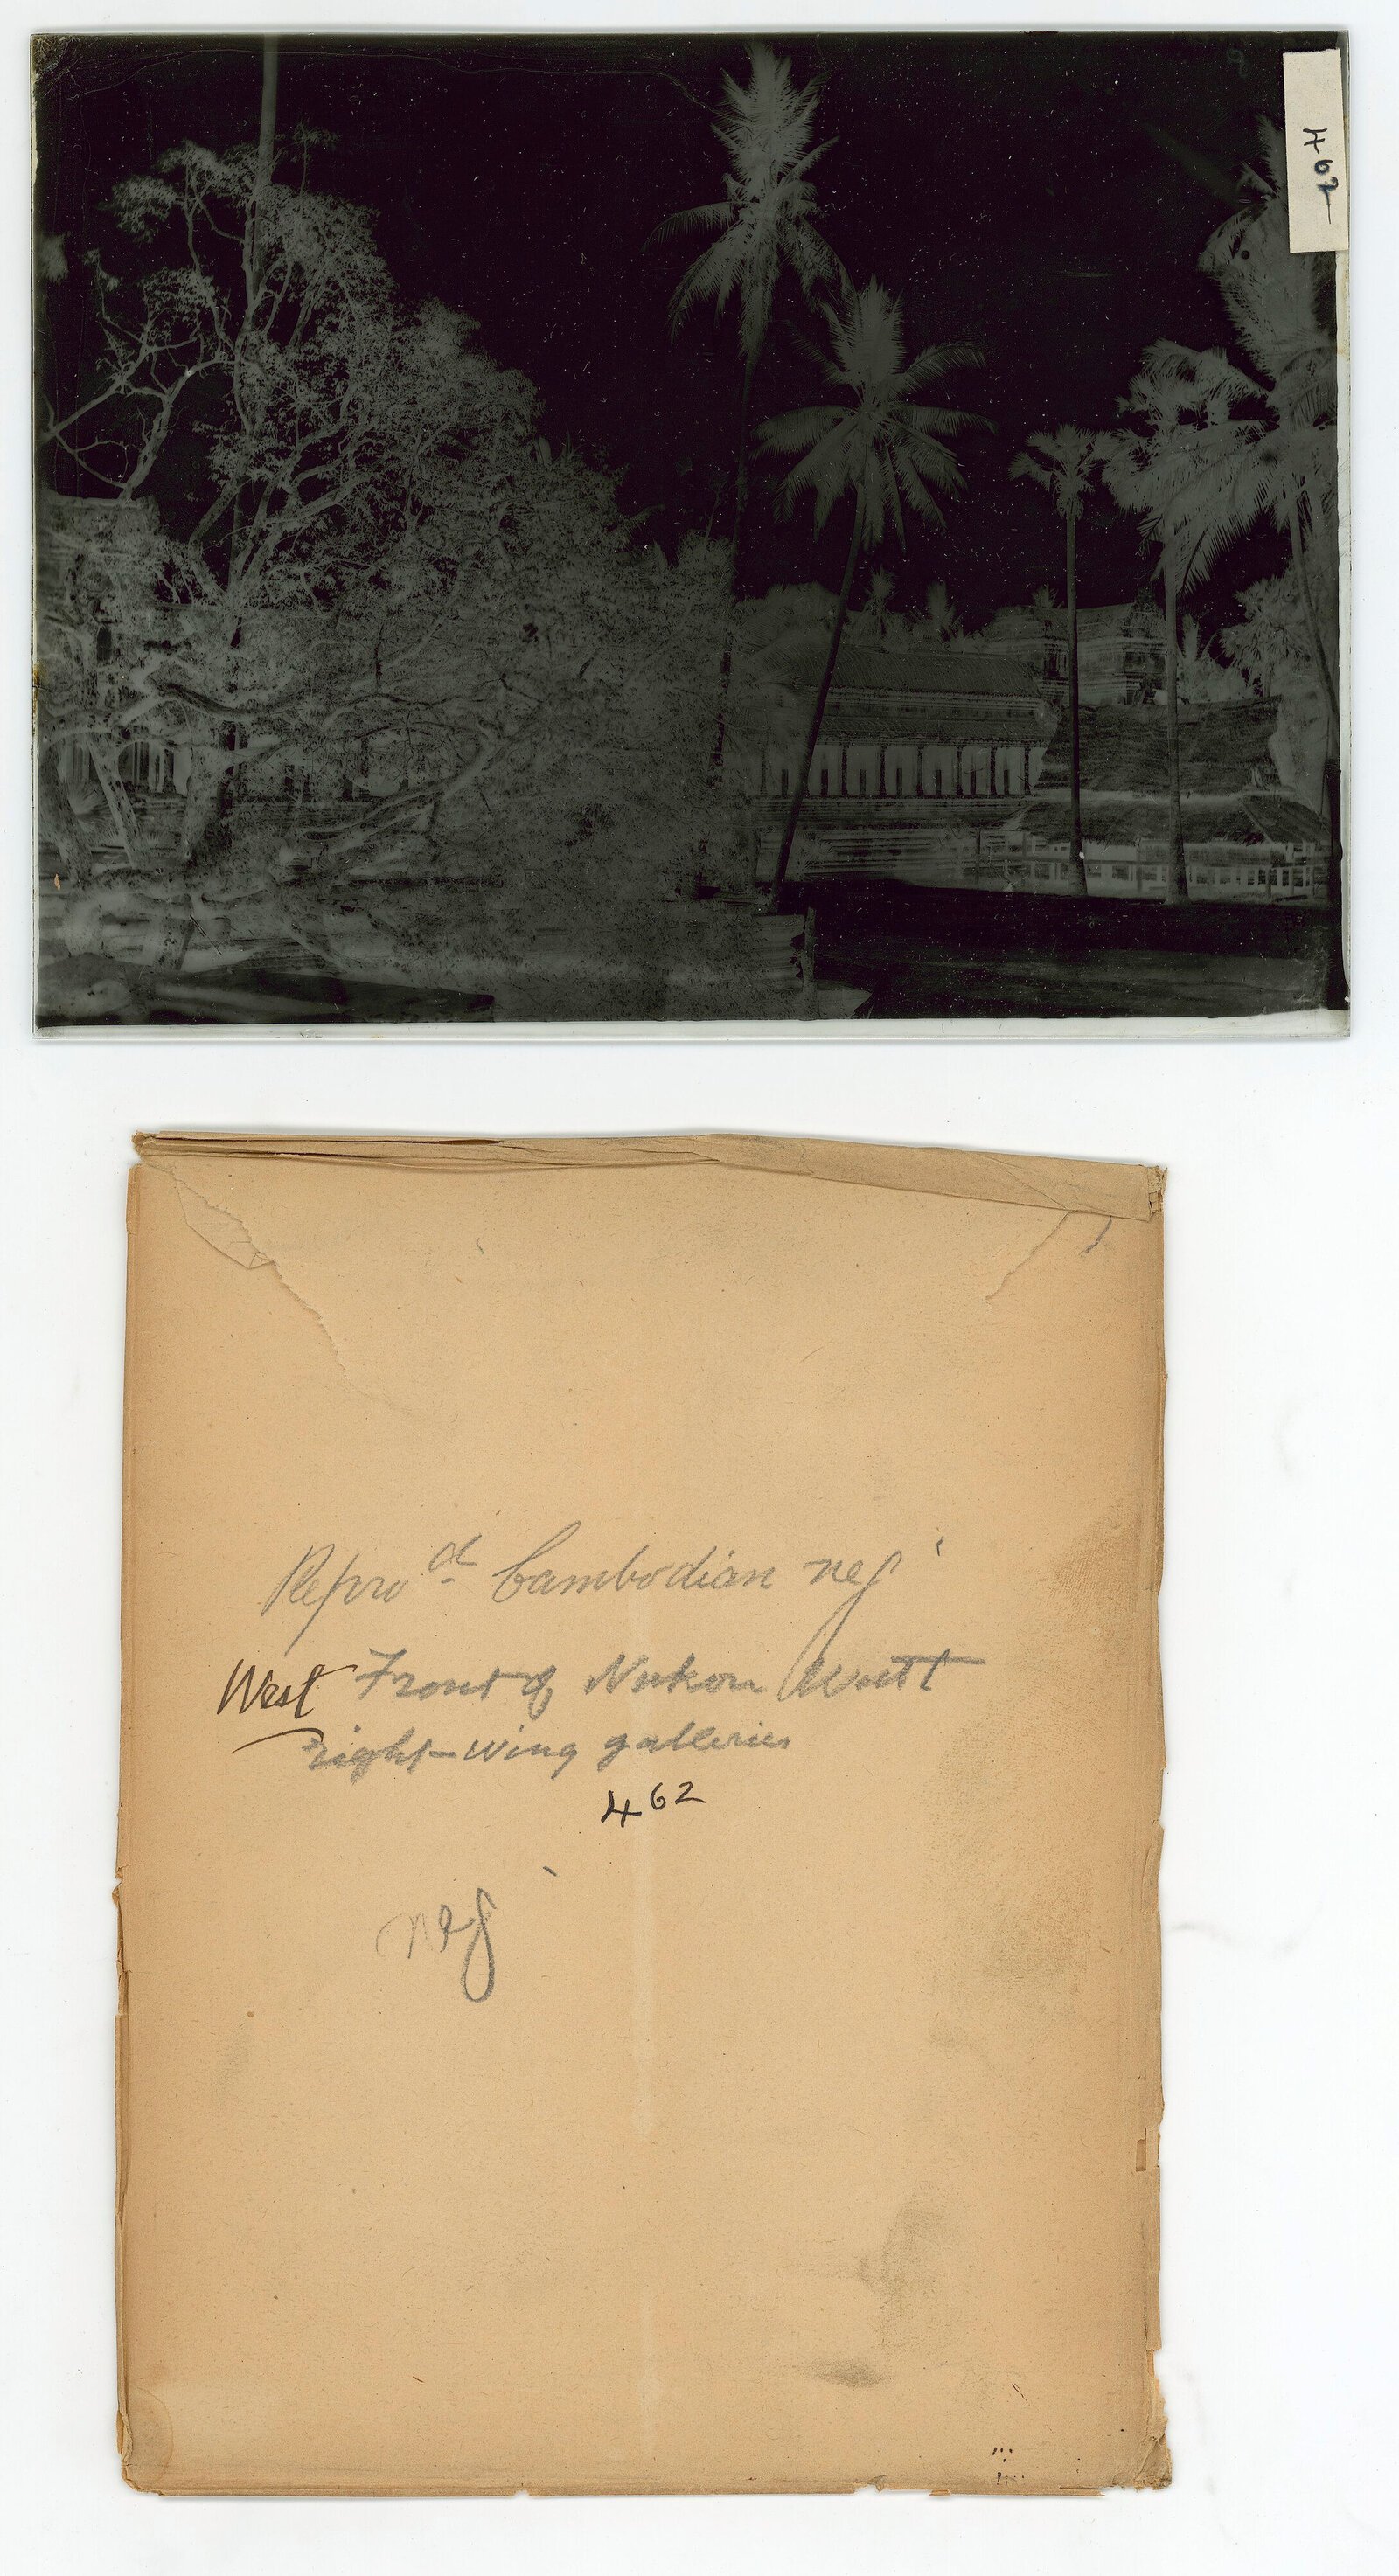 462
Repro^d Cambodian neg
West Front of Nukon Watt
right-wing galleries
462
neg